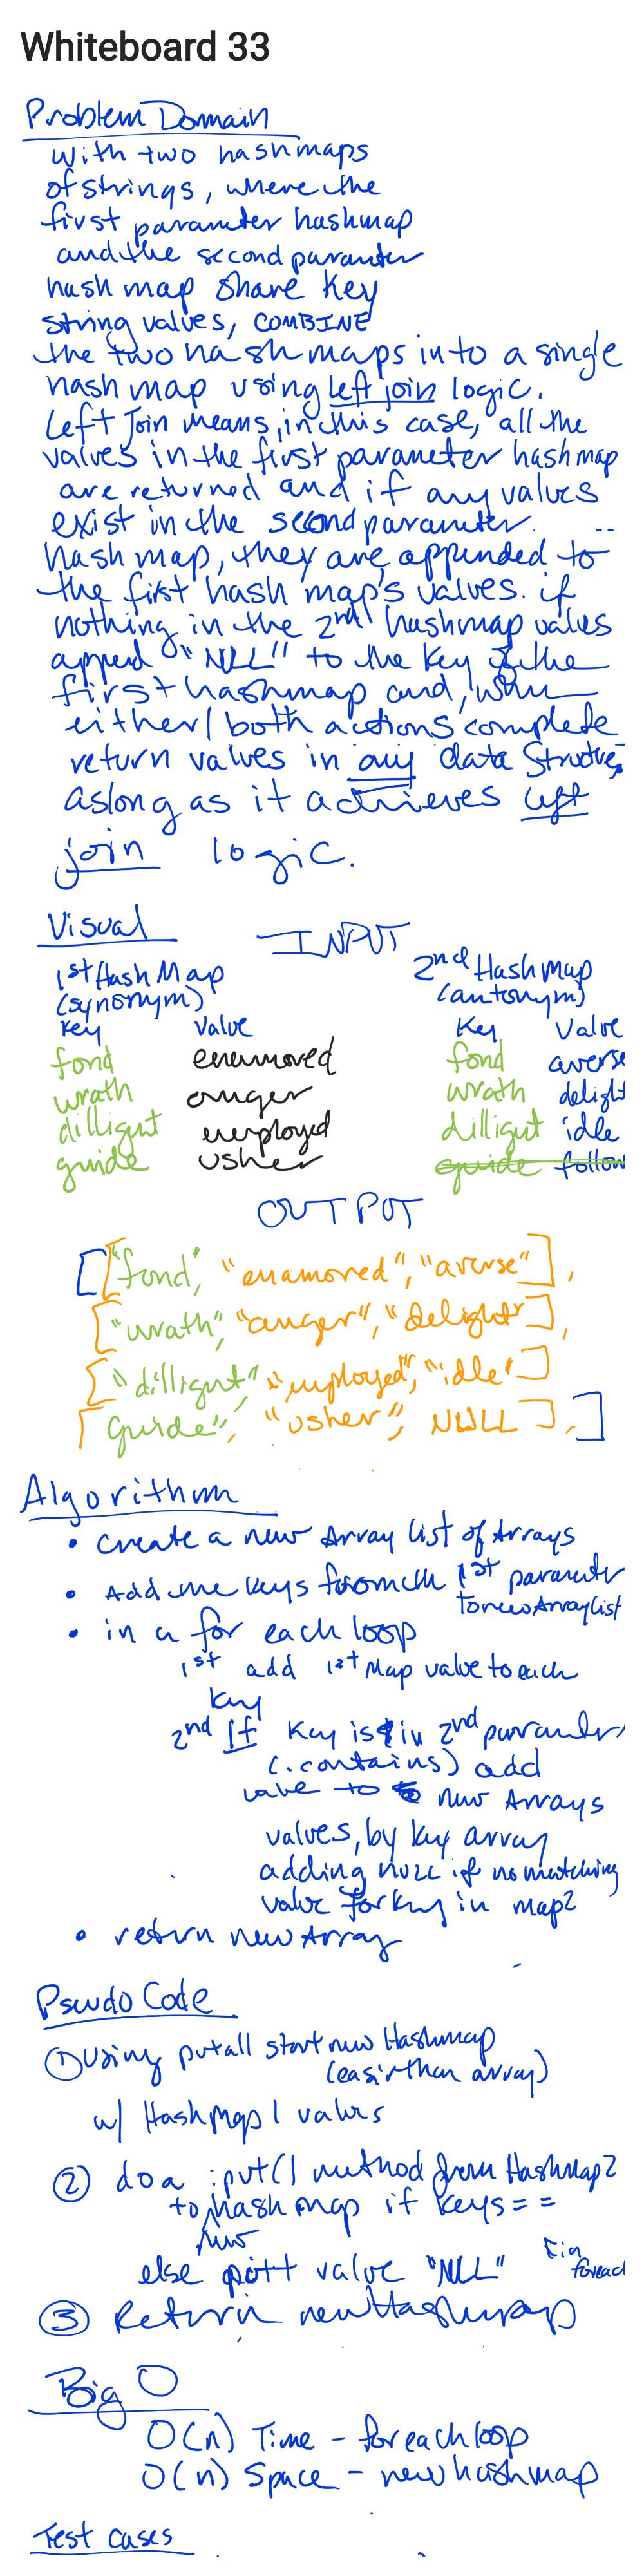 Whiteboard 33
Problem Domain
with two hashmaps
of strings, where the
first parameter hashmap
and the second paramter
hash map share key
string values, COMBINE
the two hashmaps into a single
hash map using left join logic.
Left Join means, in this case, all the
values in the first parameter hashmap
are returned and if any values
exist in the second parameter
hash map, they are appended to
the first hash map's values. if
nothing in the 2nd hashmap values
append "NLL" to the key of the
first hashmap and, when
either/both actions complete
return values in any data Structure,
aslong as it achieves left
join logic.
Visual INPUT
1st Hash Map 2nd Hash map
(synonym) (antonym)
Key Value Key Value
fond enamored fond averse
wrath anger wrath delight
dillignt employed dilligut idle
guide usher guide follow
OUTPUT
[["fond", "enamored", "averse"],
["wrath", "anger", "delight"],
["dillignt", "employed", "idle"]
[guide", "usher", NULL ],]
Algorithm
• create a new Array list of Arrays
• Add the keys from the 1st parameter
to new Array list
• in a for each loop
1st add 1st Map value to each
key
2nd If Key is in 2nd paramter
(.contains) add
value to new Arrays
values, by key array
adding null if no matching
value for key in map2
• return new Array
Psudo Code
① Using putall start new Hashmap
(easir than array)
w/ HashMap 1 values
② do a .put() method from HashMap2
to new hash map if keys ==
else put value "NLL" [in foreach
③ Return newHashmap
Big O
O(n) Time - for each loop
O(n) Space - new hashmap
Test cases